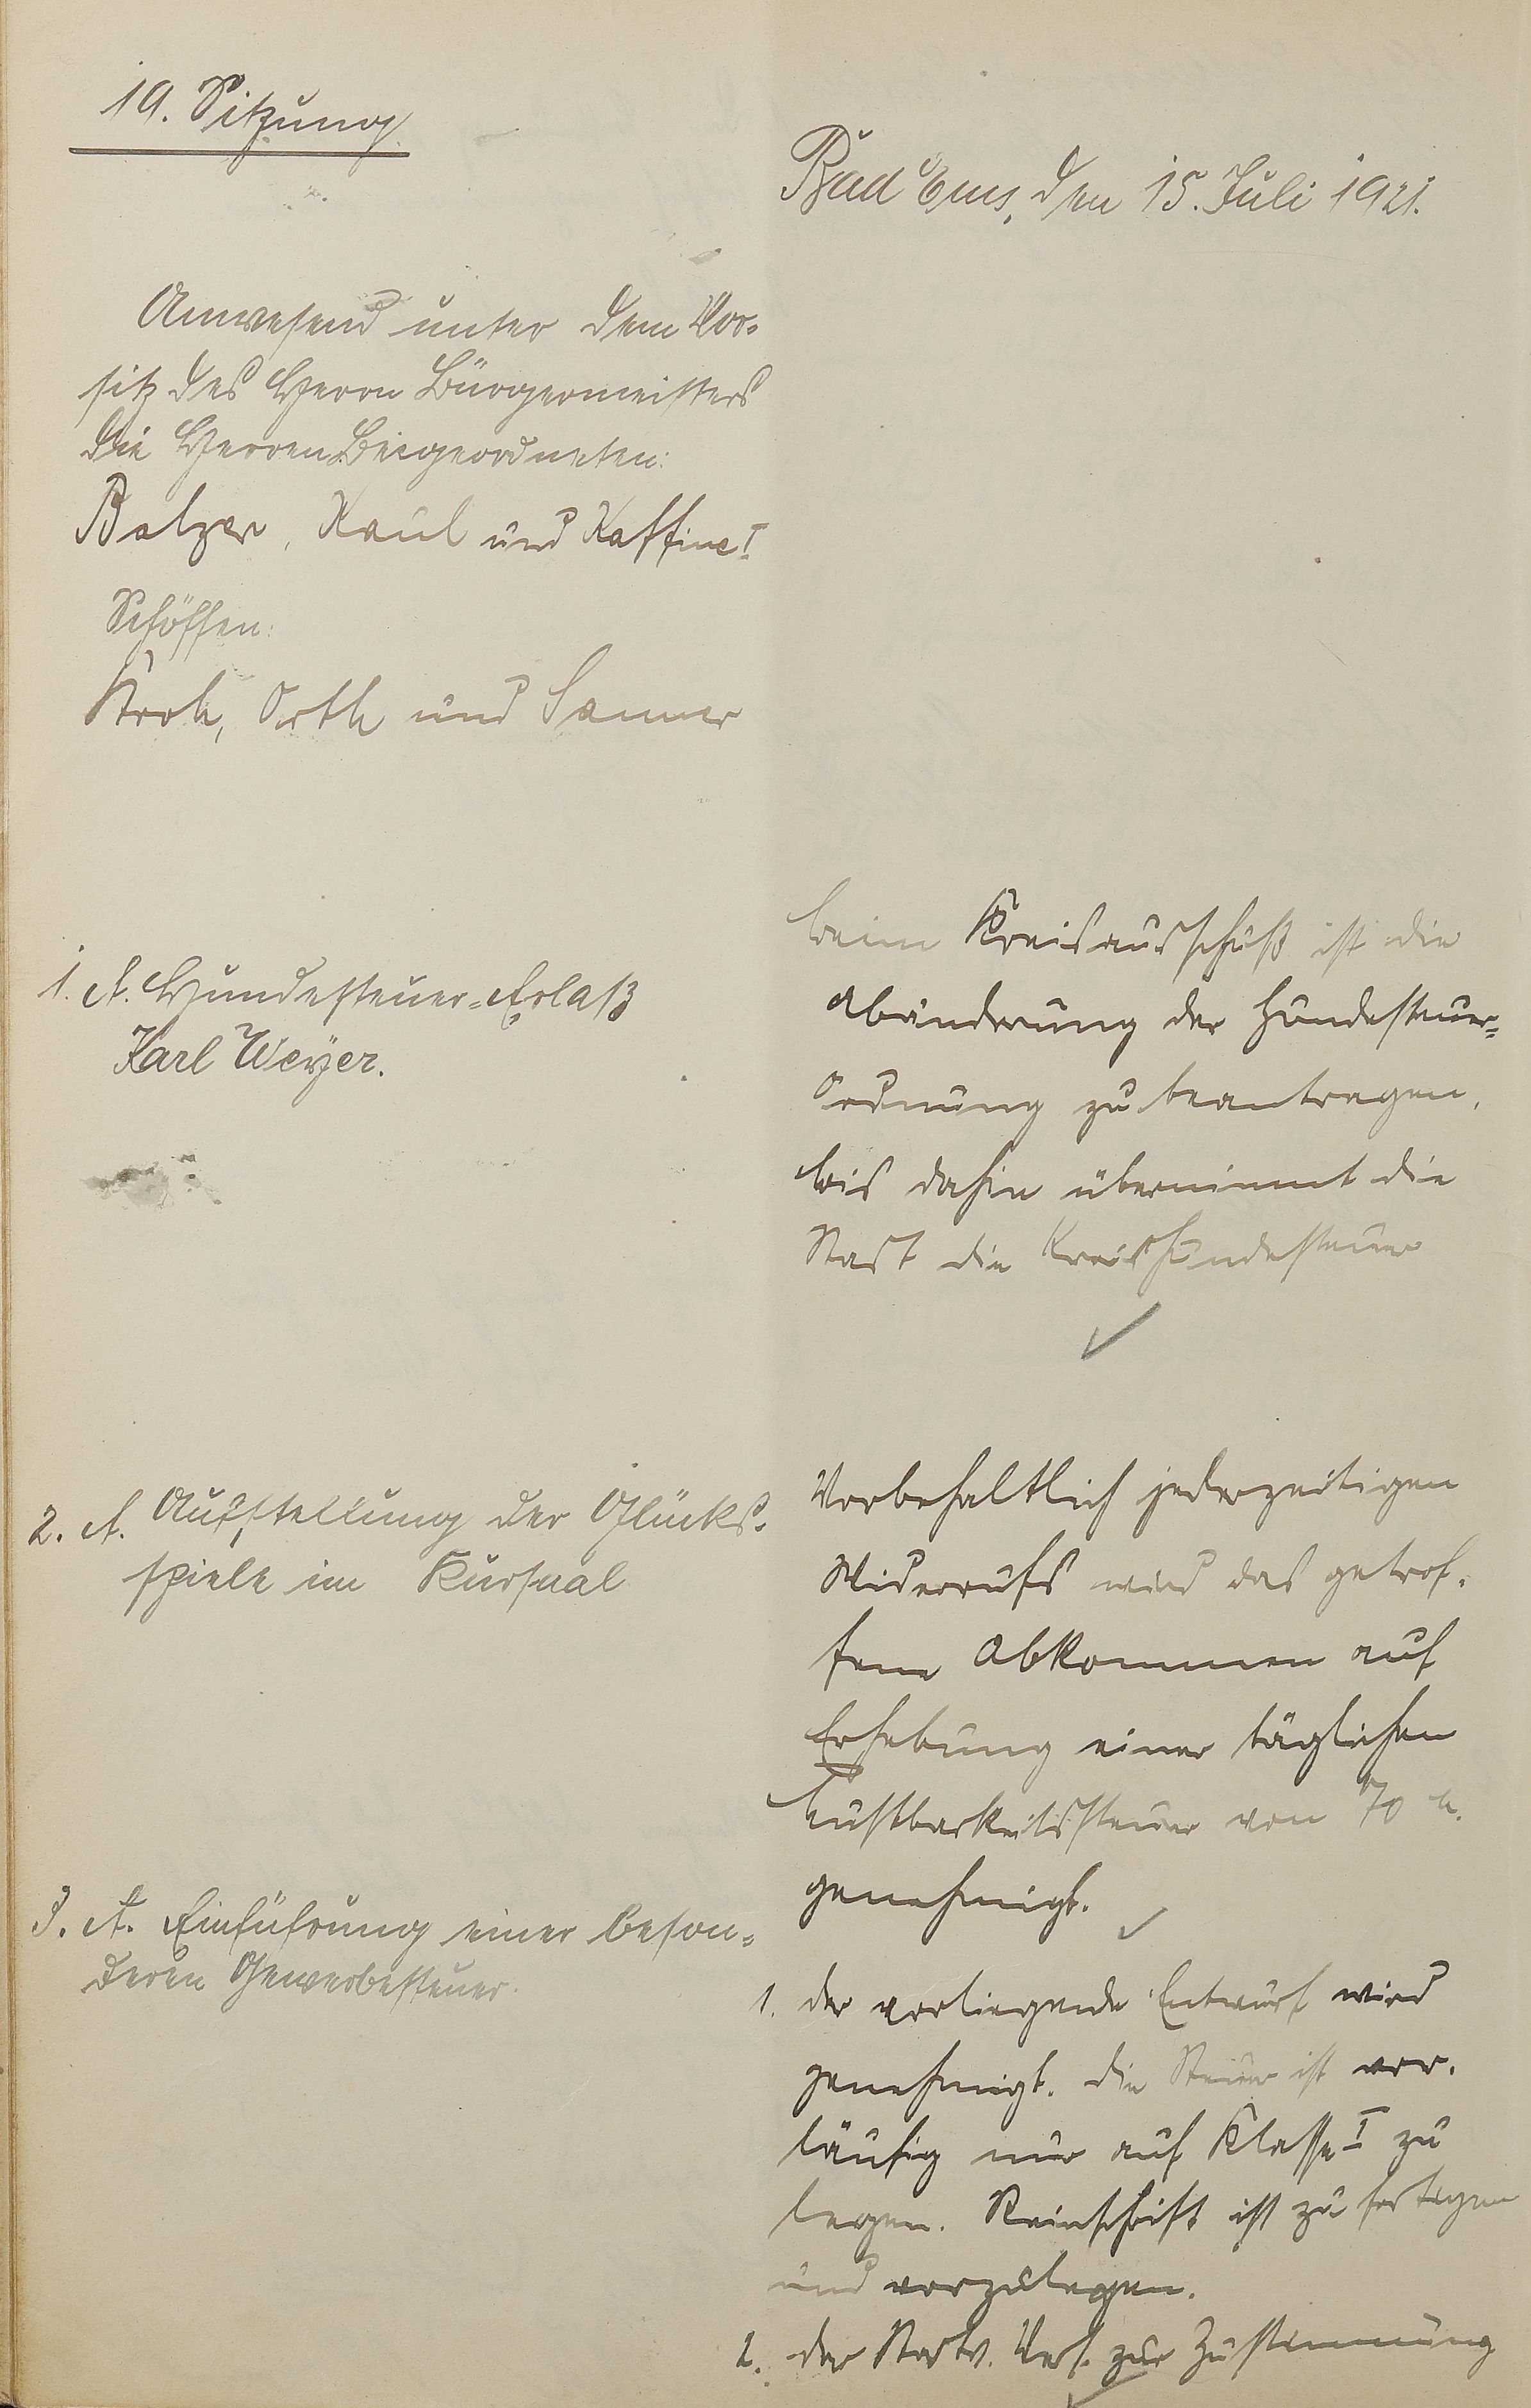 19. Sitzung.
Bad Ems, den 15. Juli 1921.
Anwesend unter dem Vor-
sitz des Herrn Bürgermeisters
die Herren Beigeordneten:
Balzer, Kaul und Kaffine I
Schöffen:
Kroh, Orth und Sanner
1. A. Hundesteuer-Erlaß
Karl Weyer.
beim Kreisausschuß ist die
Abänderung der Hundesteuer-
Ordnung zu beantragen,
bis dahin übernimmt die
Stadt die Kreishundesteuer
2. A. Aufstellung der Glücks-
spiele im Kursaal
Vorbehaltlich jederzeitigen
Widerrufs wird das getrof-
fene Abkommen auf
Erhebung einer täglichen
Lustbarkeitssteuer von 70 M.
genehmigt.
3. A. Einführung einer beson-
deren Gewerbesteuer.
1. der vorliegende Entwurf wird
genehmigt. die Steuer ist vor-
läufig nur auf Klasse I zu
legen. Reinschrift ist zu fertigen
und vorzulegen.
2. der Stadtv. Vers. zur Zustimmung